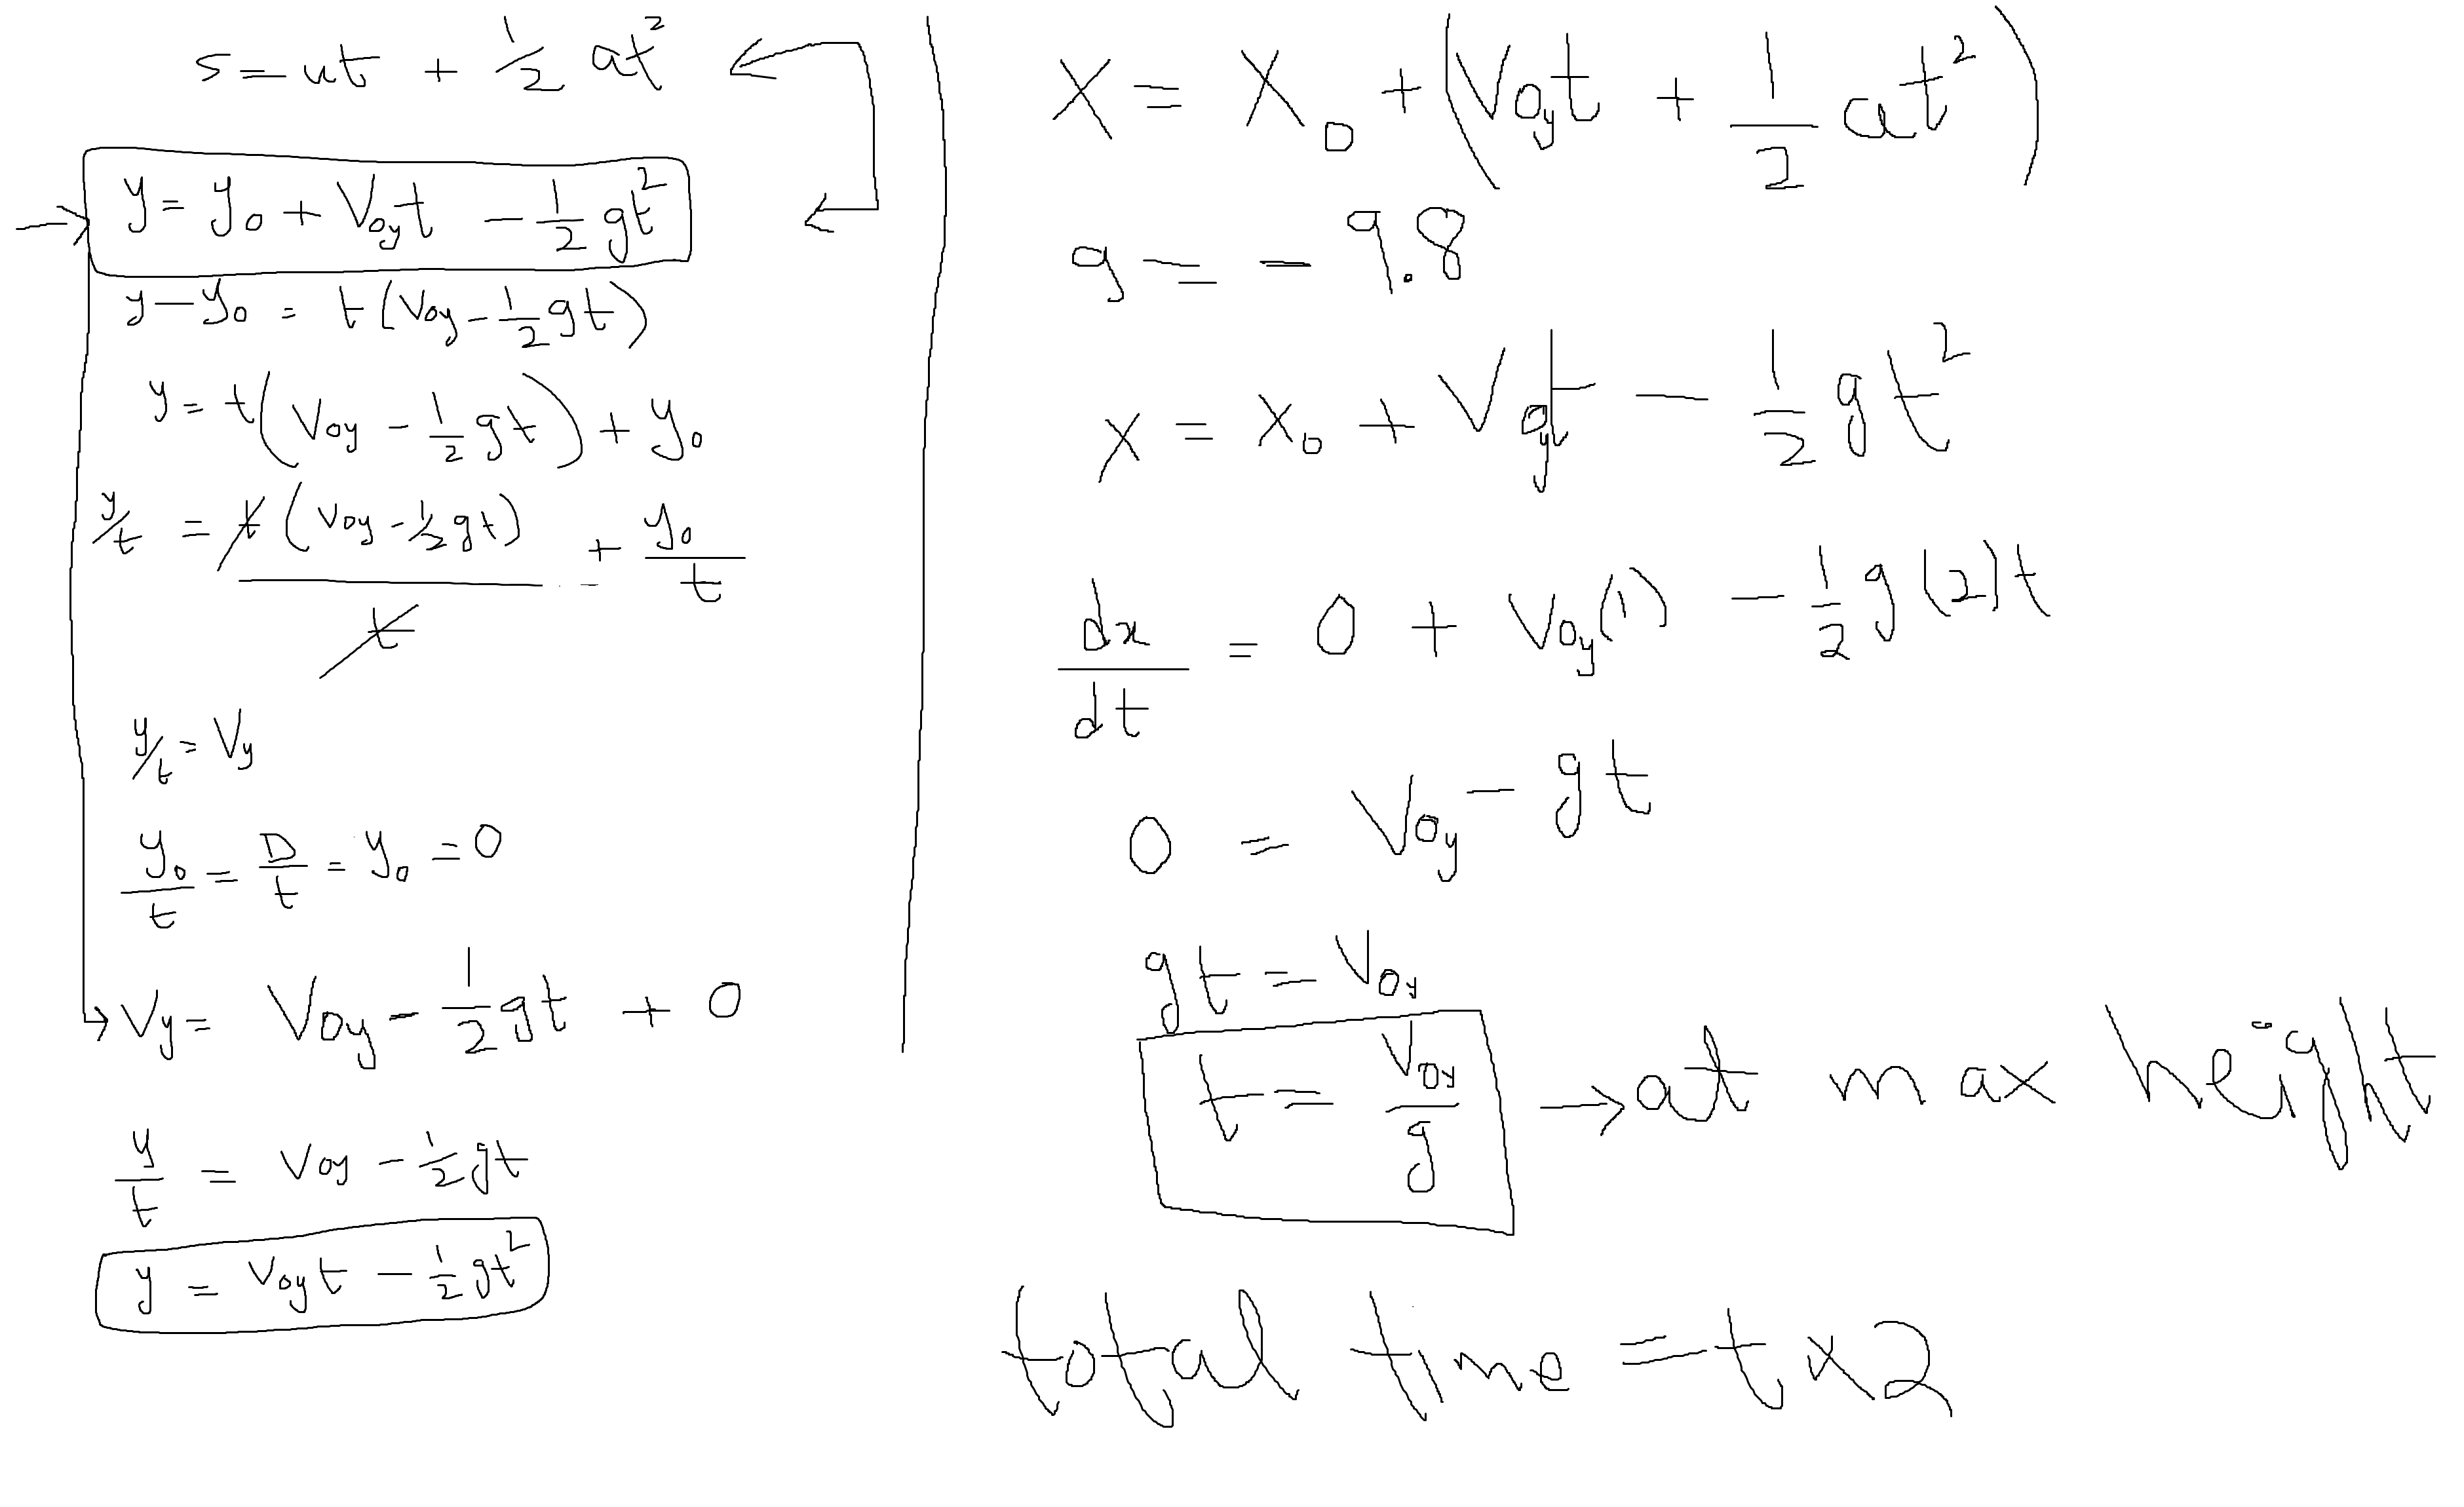 s = ut + 1/2 at²
y = y₀ + V₀yt - 1/2 gt²
y - y₀ = t(V₀y - 1/2 gt)
y = t(V₀y - 1/2 gt) + y₀
y/t = t(V₀y - 1/2 gt)/t + y₀/t
y/t = Vy
y₀/t = D/t = y₀ = 0
Vy = V₀y - 1/2 gt + 0
y/t = V₀y - 1/2 gt
y = V₀yt - 1/2 gt²
X = X₀ + (V₀yt + 1/2 at²)
g = - 9.8
x = x₀ + V₀yt - 1/2 gt²
dx/dt = 0 + V₀y(1) - 1/2 g(2)t
0 = V₀y - gt
gt = V₀y
t = V₀y/g → at max height
total time = t x 2